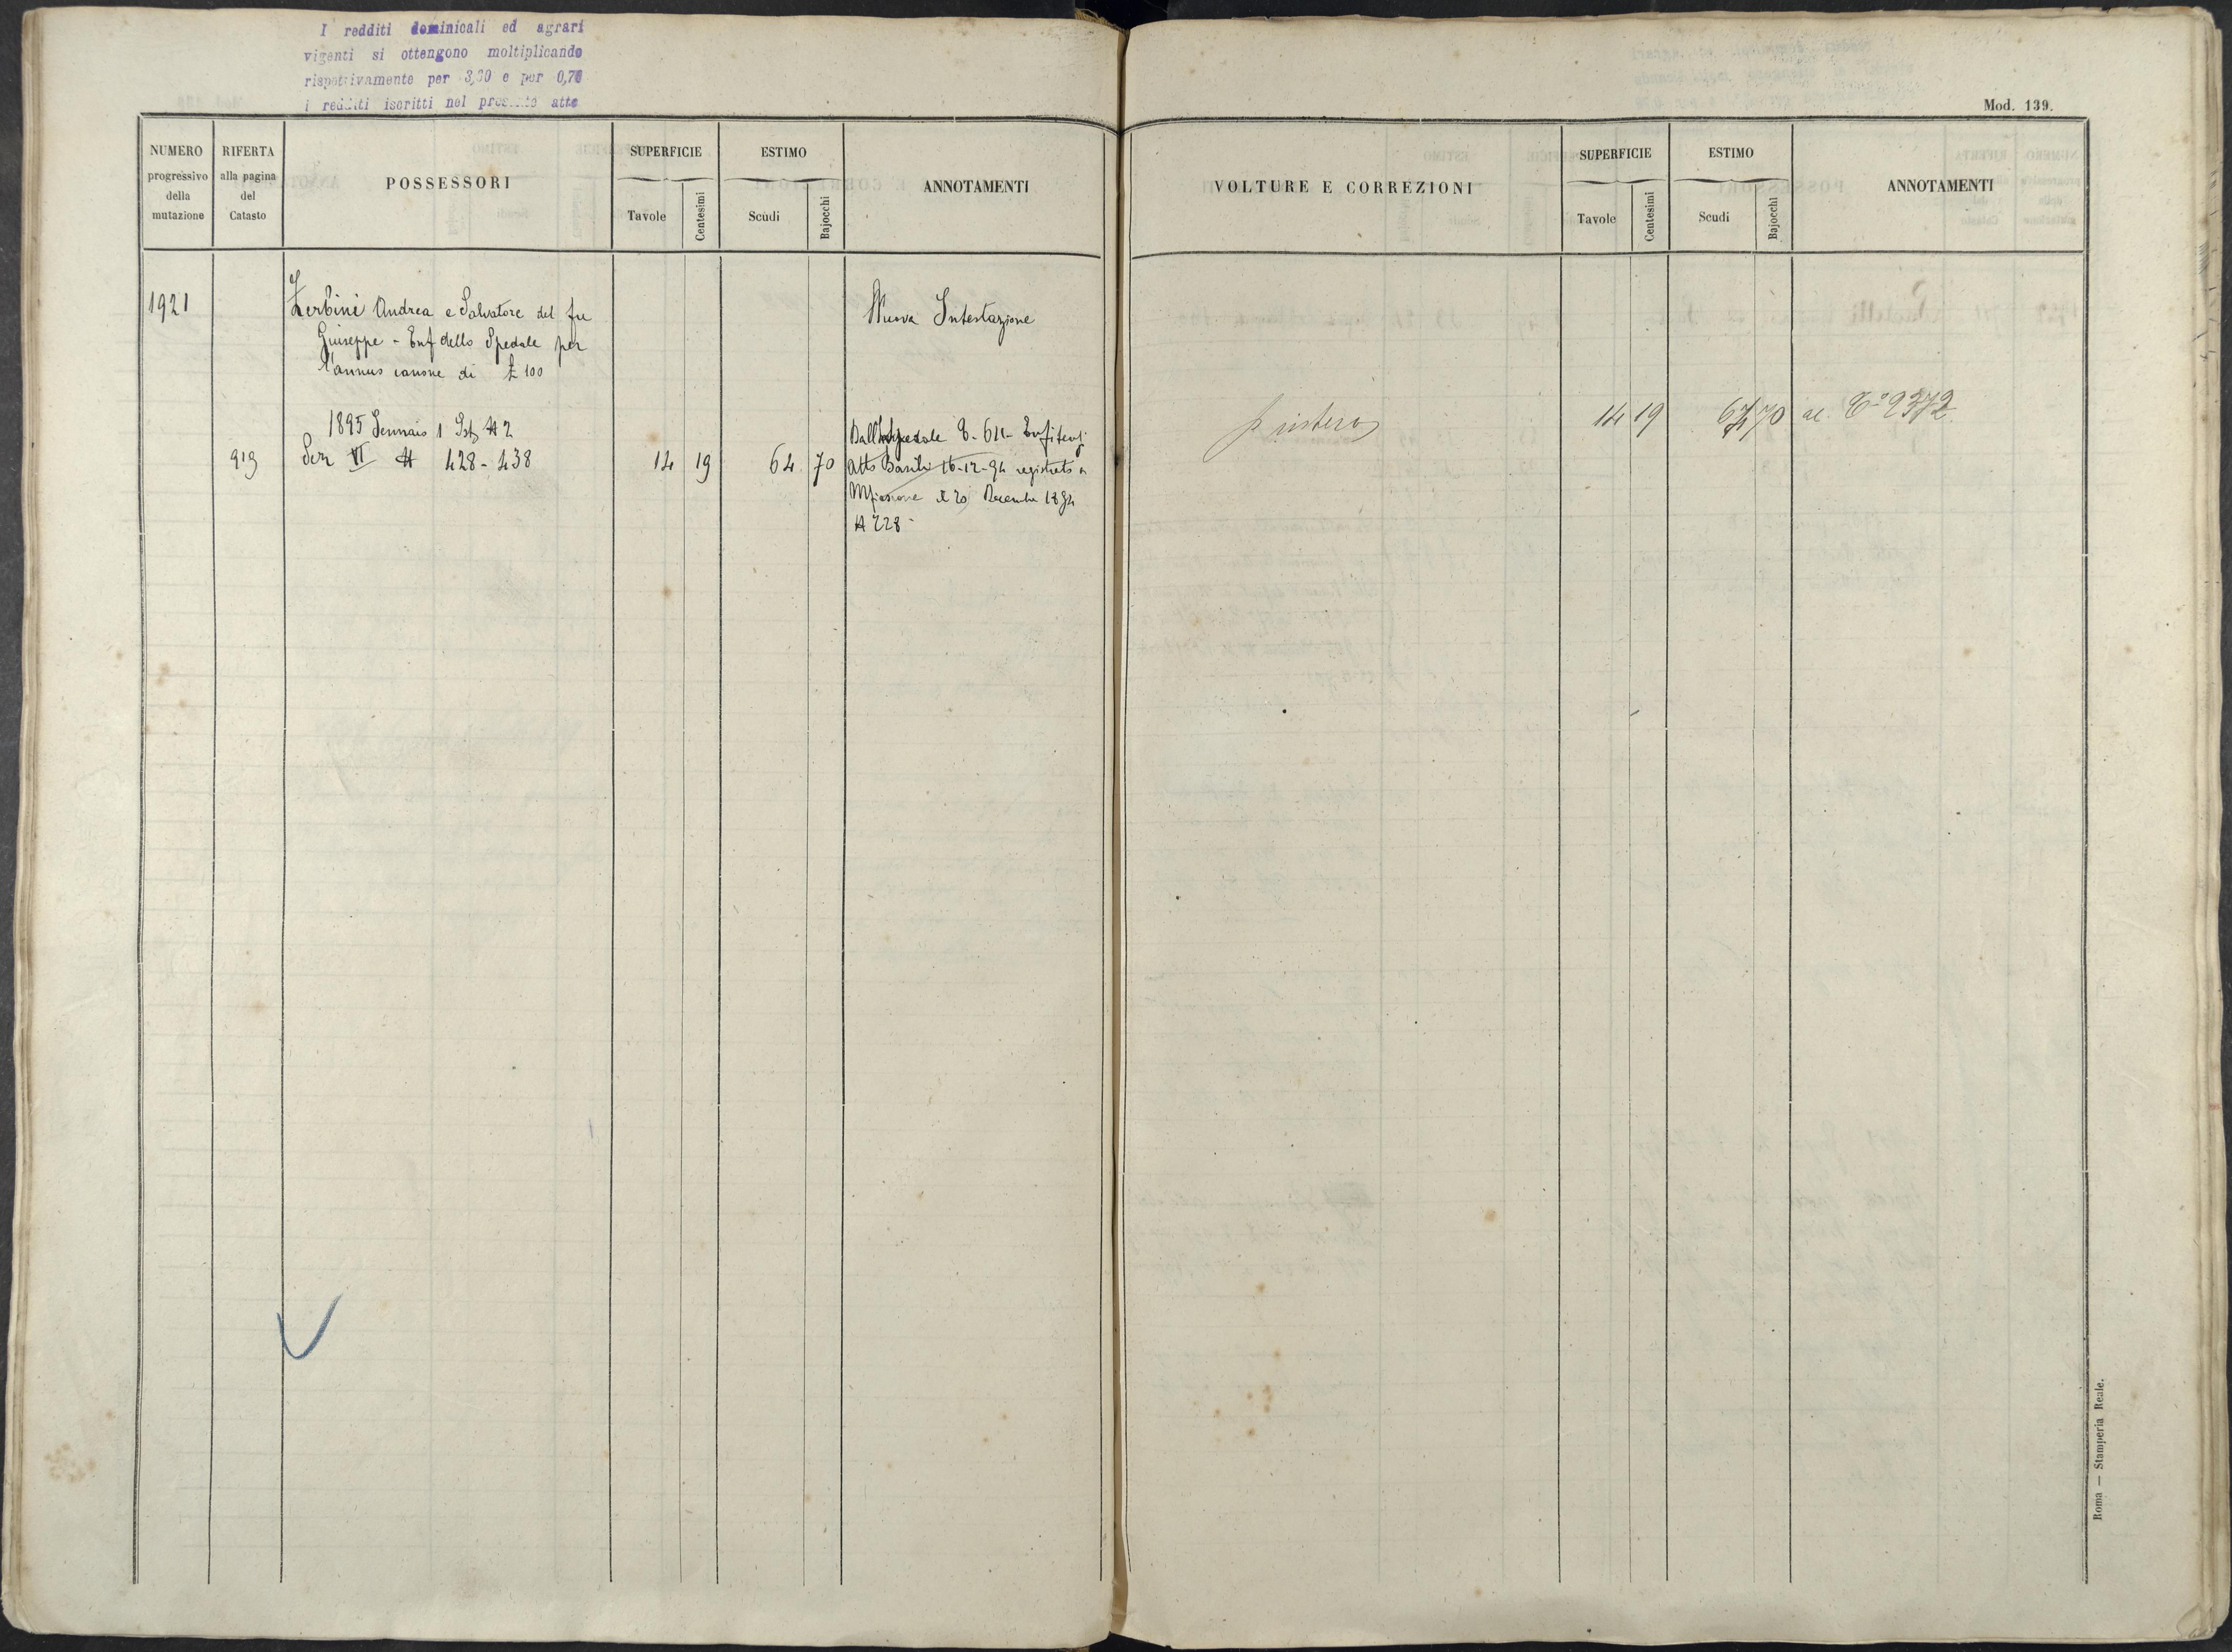 I redditi dominicali ed agrari
vigenti si ottengono moltiplicando
rispettivamente per 3,30 e per 0,70
i redditi iscritti nel presente atto
Mod. 139.
NUMERO progressivo della mutazione
RIFERTA alla pagina del Catasto
POSSESSORI
SUPERFICIE
Tavole
Centesimi
ESTIMO
Scudi
Bajocchi
ANNOTAMENTI
VOLTURE E CORREZIONI
SUPERFICIE
Tavole
Centesimi
ESTIMO
Scudi
Bajocchi
ANNOTAMENTI
1921
Zerbini Andrea e Salvatore del fu
Giuseppe - Enf dello Spedale per
l'annuo canone di £ 100
Nuova Intestazione
1895 Gennaio 1 Ist N 2
919 Sez VI N 428 - 438 14 19 64 70
Dall'Ospedale C. 611 - Enfiteusi
atto 16-12-94 registrato a
il 20 Decembre 1894
N 228
p intero 14 19 64 70 al C° 2372
Roma — Stamperia Reale.